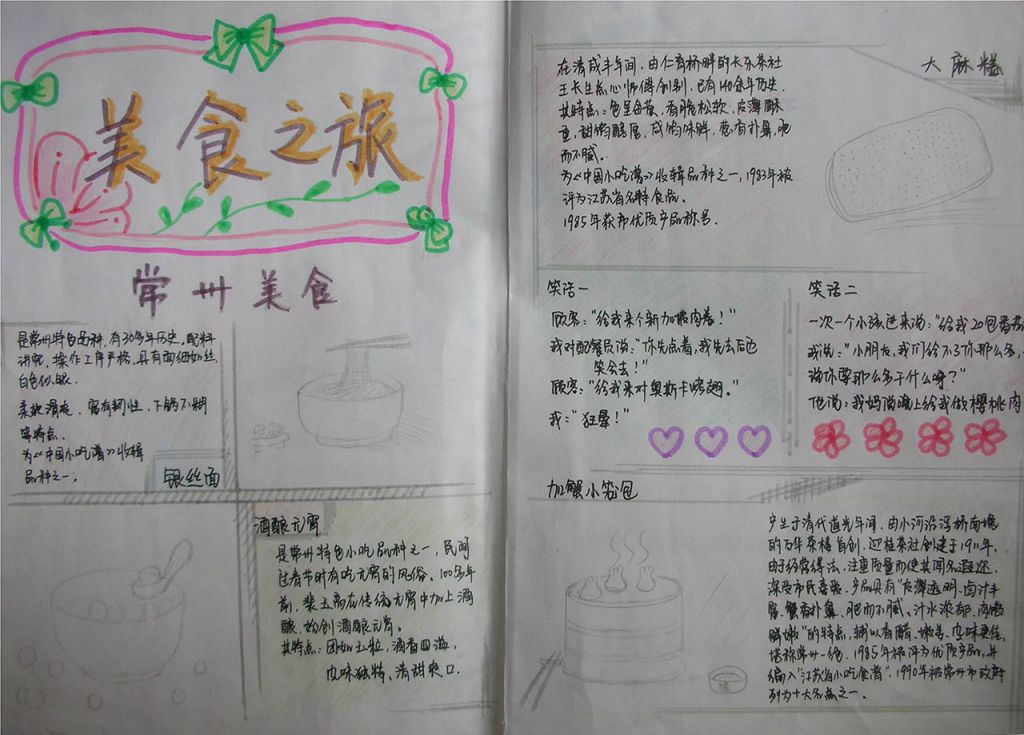 美食之旅
常州美食
是常州特色品种,有30多年历史,配料
讲究,操作工序严格,具有面细如丝,
白色似银.
柔软滑爽、富有韧性、下锅不糊
等特点.
为《中国小吃谱》收辑
品种之一。
银丝面
酒酿元宵
是常州特色小吃品种之一,民间
过春节时有吃元宵的风俗。100多年
前,裴五高在传统元宵中加上酒
酿,始创酒酿元宵。
其特点:圆如玉粒,酒香四溢,
风味独特、清甜爽口.
大麻糕
在清咸丰年间,由仁育桥畔的长乐茶社
王长生点心师傅创制,已有140余年历史.
其特点:色呈金黄,香脆松软、皮薄酥
重,甜的醇厚,咸的味鲜,葱香扑鼻,肥
而不腻。
为《中国小吃谱》收辑品种之一,1983年被
评为江苏省名特食品.
1985年获市优质产品称号.
笑话一
顾客:"给我来个新加坡肉卷!"
我对配餐员说:"你先点着,我先去后边
笑会去!"
顾客:"给我来对奥斯卡烤翅。"
我:"狂晕!"
笑话二
一次一个小孩进来说:"给我20包番茄
我说:"小朋友,我们给不了你那么多,
说你要那么多干什么呀?"
他说:我妈说晚上给我做樱桃肉
加蟹小笼包
产生于清代道光年间,由小河沿浮桥南堍
的万华茶楼首创,迎桂茶社创建于1911年,
由于经营得法,注重质量而使其闻名遐迩、
深受市民喜爱。产品具有"皮薄透明、卤汁丰
富、蟹香扑鼻、肥而不腻、汁水浓郁、肉嫩
鲜嫩"的特点,辅以香醋、嫩姜、风味更佳,
堪称常州一绝.1985年被评为优质产品,并
编入"江苏省小吃食谱".1990年被常州市政府
列为十大名点之一.